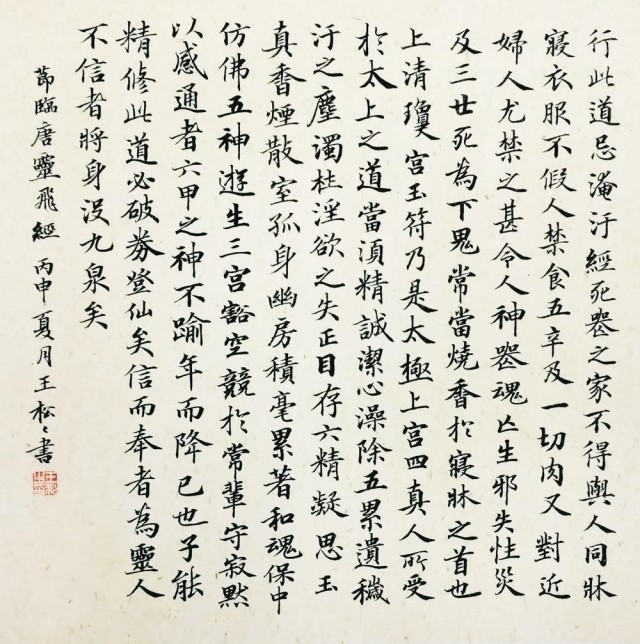 行此道忌淹汙經死喪之家不得與人同牀
寢衣服不假人禁食五辛及一切肉又對近
婦人尤禁之甚令人神喪魂亡生邪失性災
及三世死為下鬼常當燒香於寢牀之首也
上清瓊宮玉符乃是太極上宮四真人所受
於太上之道當須精誠潔心澡除五累遺穢
汙之塵濁杜淫欲之失正目存六精凝思玉
真香煙散室孤身幽房積毫累著和魂保中
仿佛五神遊生三宮豁空競於常輩守寂默
以感通者六甲之神不踰年而降已也子能
精修此道必破券登仙矣信而奉者為靈人
不信者將身沒九泉矣
節臨唐靈飛經 丙申夏月王松〻書